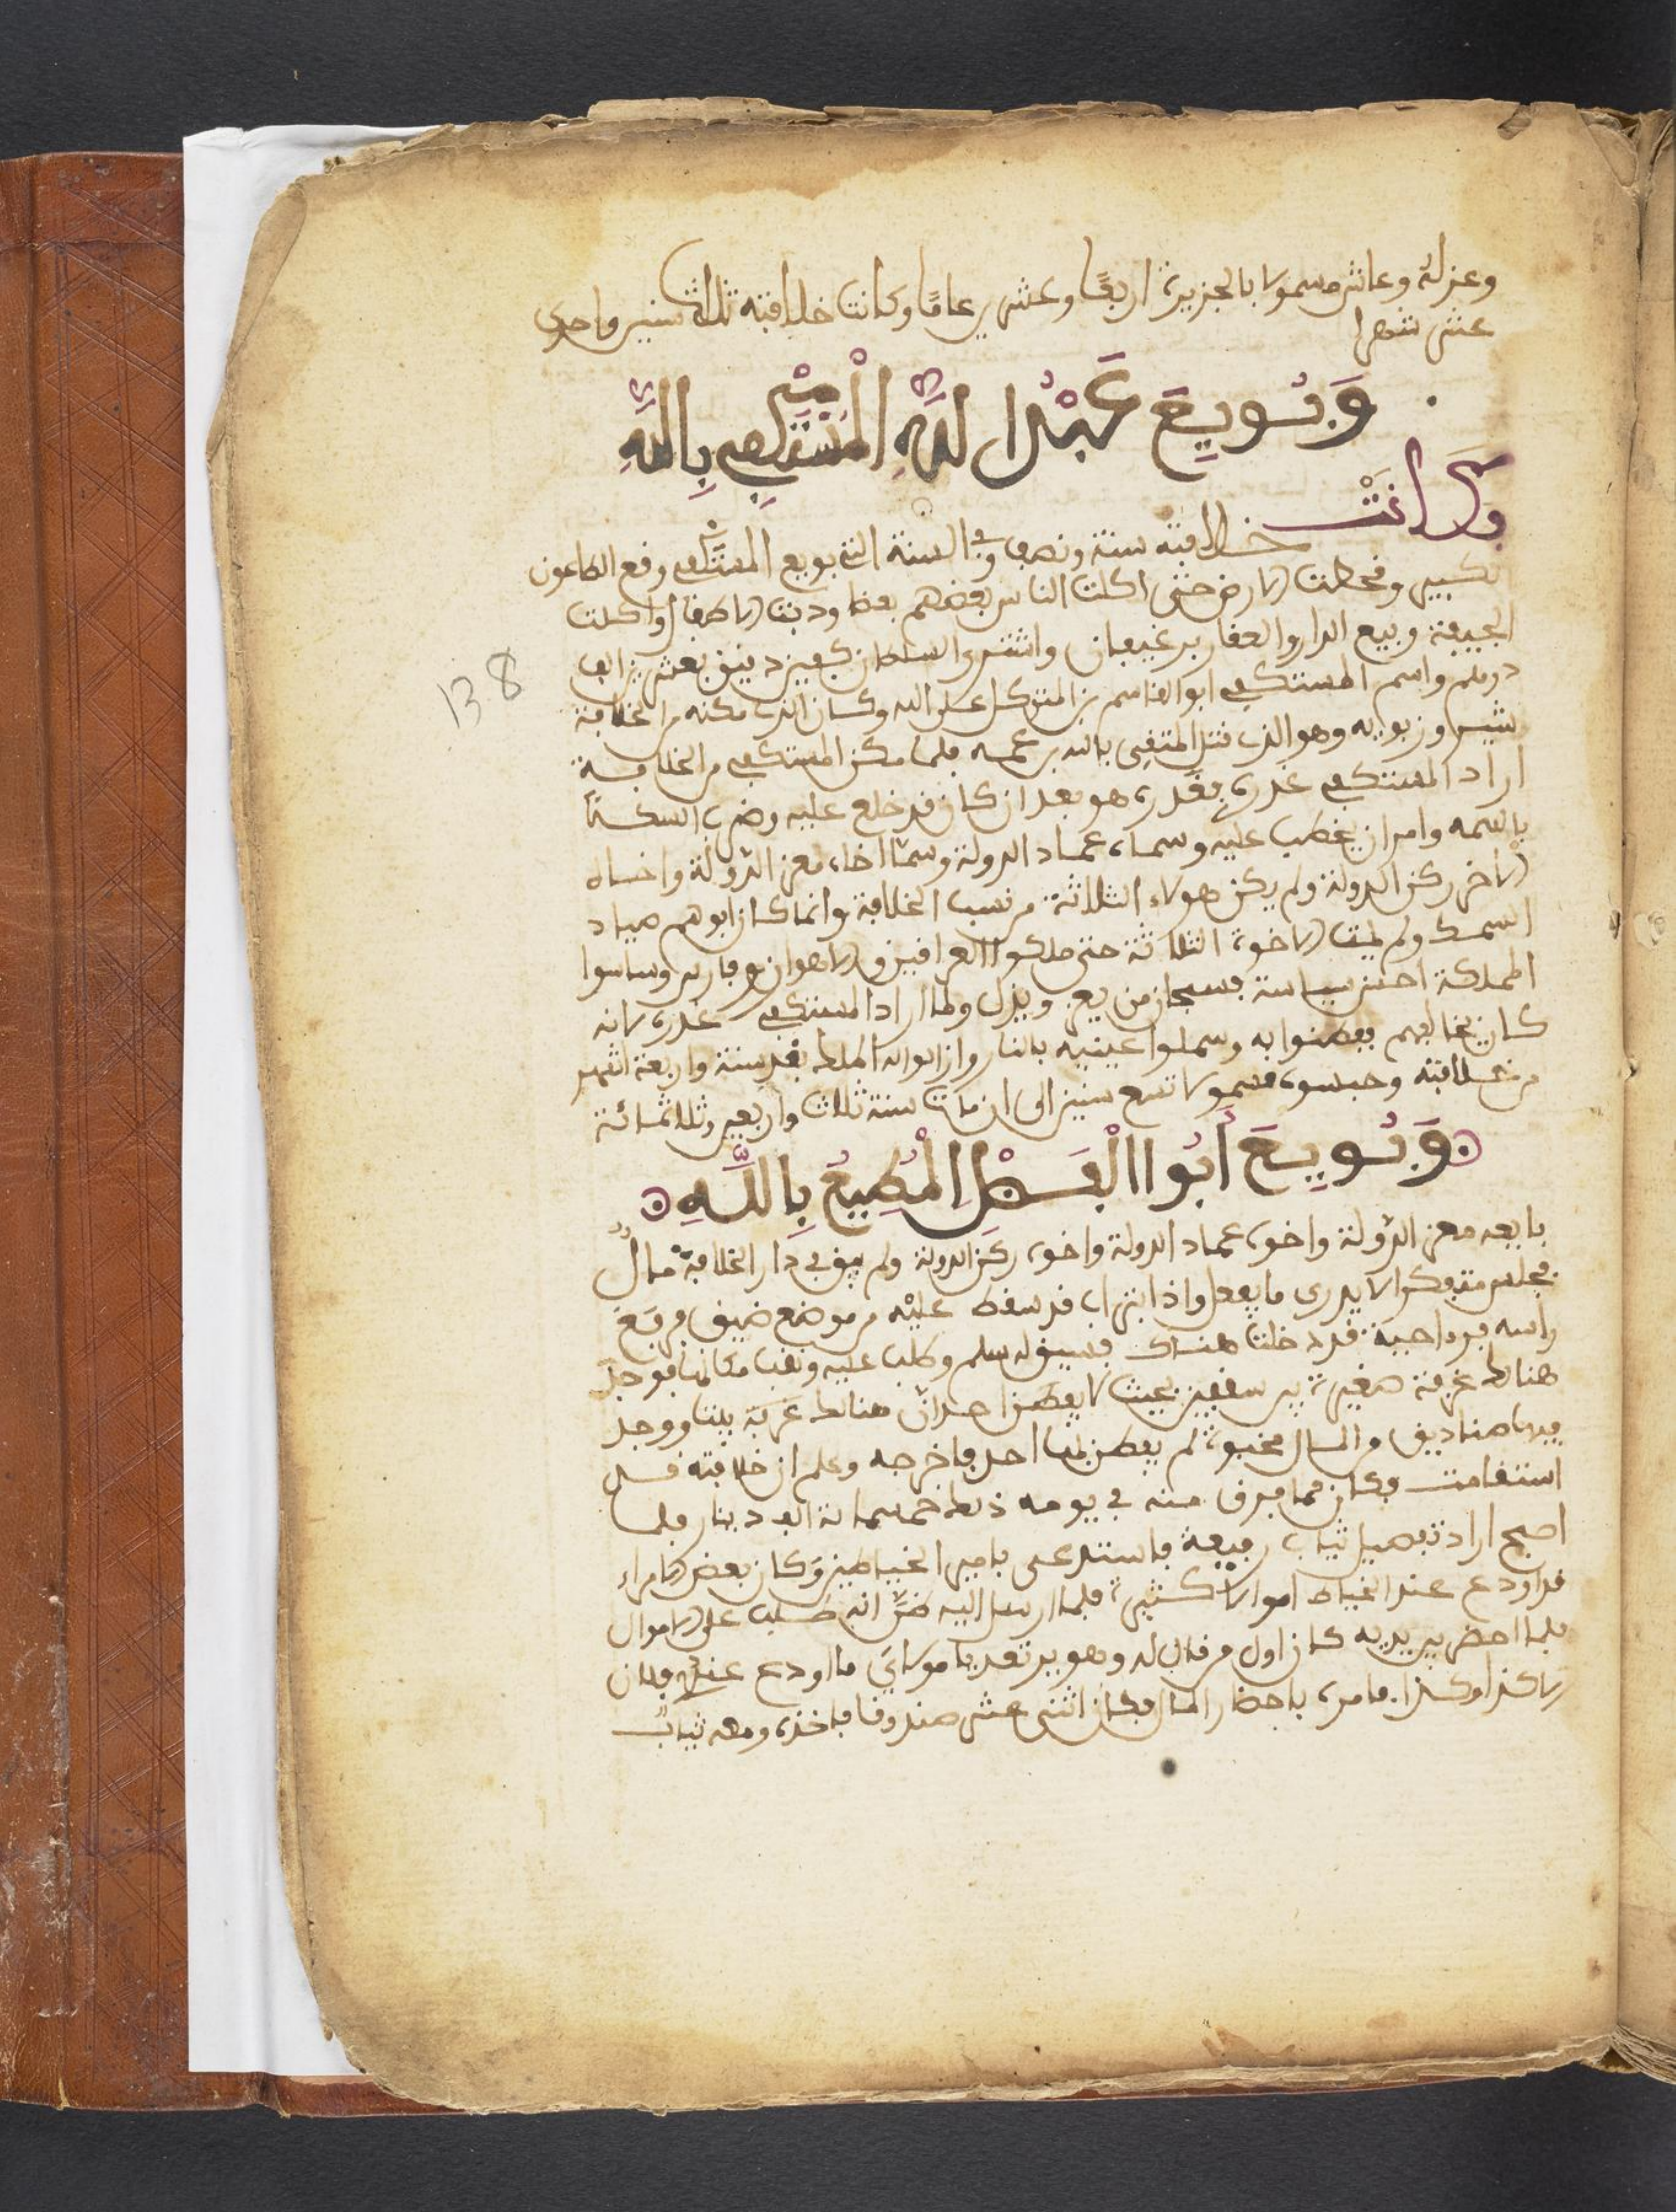 وعزله وعاش مسمولا بالجزيرة اربعًا وعشرين عامًا وكانت خلافته ثلاث سنين واحدى
عشر شهرا
وَبُويِعَ عَبْدُ اللَّهِ الْمُسْتَكْفِي بِاللَّهِ
وكَانَتْ
خلافته سنة ونصف وفي السنة التي بويع المستكفي وقع الطاعون
الكبير وقحطت الارض حتى اكلت الناس بعضهم بعضا ودبت الاطفال واكلت
الجيفة وبيع الدار والعقار برغيفان واشترى السلطان كفيز دقيق بعشرين الف
درهم واسم المستكفي ابو القاسم بن المتوكل على الله وكان الذي مكنه من الخلافة
شيروز بويه وهو الذي قتل المتقي بالله بن عمه فلما مكن المستكفي من الخلافة
اراد المستكفي غدره فغدره هو بعد ان كان قد خلع عليه وضرب السكة
باسمه وامر ان يخطب عليه وسماه عماد الدولة وسمّا اخاه معز الدولة واخاه
الاخر ركن الدولة ولم يكن هولاء الثلاثة من نسب الخلافة وانما كان ابوهم صياد
السمك ولم يمت الاخوة الثلاثة حتى ملكوا العراقين والاهواز وفارس وساسوا
المملكة احسن سياسة فسبحان من يعز ويذل ولما اراد المستكفي غدره لانه
كان يخافهم ففطنوا به وسملوا عينيه بالنار وازالوا له الملك بعد سنة واربعة اشهر
من خلافته وحبسوه مسمولا تسع سنين الى ان مات سنة ثلاث واربعين وثلاثمائة
وَبُويِعَ أَبُوا الْفَضْلِ الْمُطِيعُ بِاللَّهِ
بايعه معز الدولة واخوه عماد الدولة واخوه ركن الدولة ولم يبق في دار الخلافة مالٌ
فجلس متفكرا لا يدري ما يفعل واذا بتراب قد سقط عليه من موضع ضيق فرفع
راسه فرءا حية قد دخلت هناك فسيق له سلم وطلب عليه ونقب مكانها فوجد
هنالك غرفة صغيرة بين سقفين بحيث لا يفطن احد ان هنالك غرفة بيتا ووجد
فيها صناديق من المال مخبوة لم يفطن بها احد فاخرجه وعلم ان خلافته قد
استقامت فكان مما فرق منه في يومه ذلك خمسماية الف دينار فلما
اصبح اراد تفصيل ثياب رفيعة فاستدعى بامير الخياطين وكان بعض الامراء
قد اودع عند الخياط اموالا كثيرة فلما ارسل اليه ظنّ انه طلب على الاموال
فلما احضر بين يديه كان اول من قال له وهو يرتعد يا مولاي ما اودع عندي فلان
الا كذا وكذا فامره باحضار المال فكان اثنى عشر صندوقا فاخذه ومعه ثياب
138